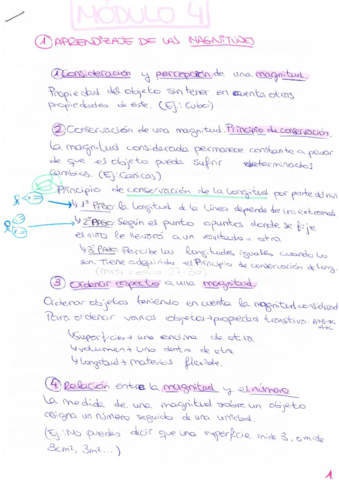 MÓDULO 4
① APRENDIZAJE DE LAS MAGNITUDES
① Consideración y percepción de una magnitud.
Propiedad del objeto sin tener en cuenta otras
propiedades de este. (Ej: Cubo)
② Conservación de una magnitud. Principio de conservación.
La magnitud considerada permanece constante a pesar
de que el objeto pueda sufrir determinados
cambios. (Ej: Canicas)
Principio de conservación de la longitud por parte del niño
↳ 1º PASO: la longitud de la línea depende de los extremos.
↳ 2º PASO: Según el punto donde se fije
el niño le llevará a un resultado u otro.
↳ 3º PASO: Percibe las longitudes iguales cuando lo
son. Tiene adquirido el Principio de conservación de long.
③ Ordenar respecto a una magnitud.
Ordenar objetos teniendo en cuenta la magnitud considerada
Para ordenar varios objetos → propiedad transitiva
↳ Superficie → uno encima de otro.
↳ volumen → uno dentro de otro.
↳ Longitud → material flexible.
④ Relación entre la magnitud y el número
La medida de una magnitud sobre un objeto
asigna un número seguido de una unidad.
(Ej: No puedes decir que una superficie mide 3, o mide
3cm², 3m²...)
1.